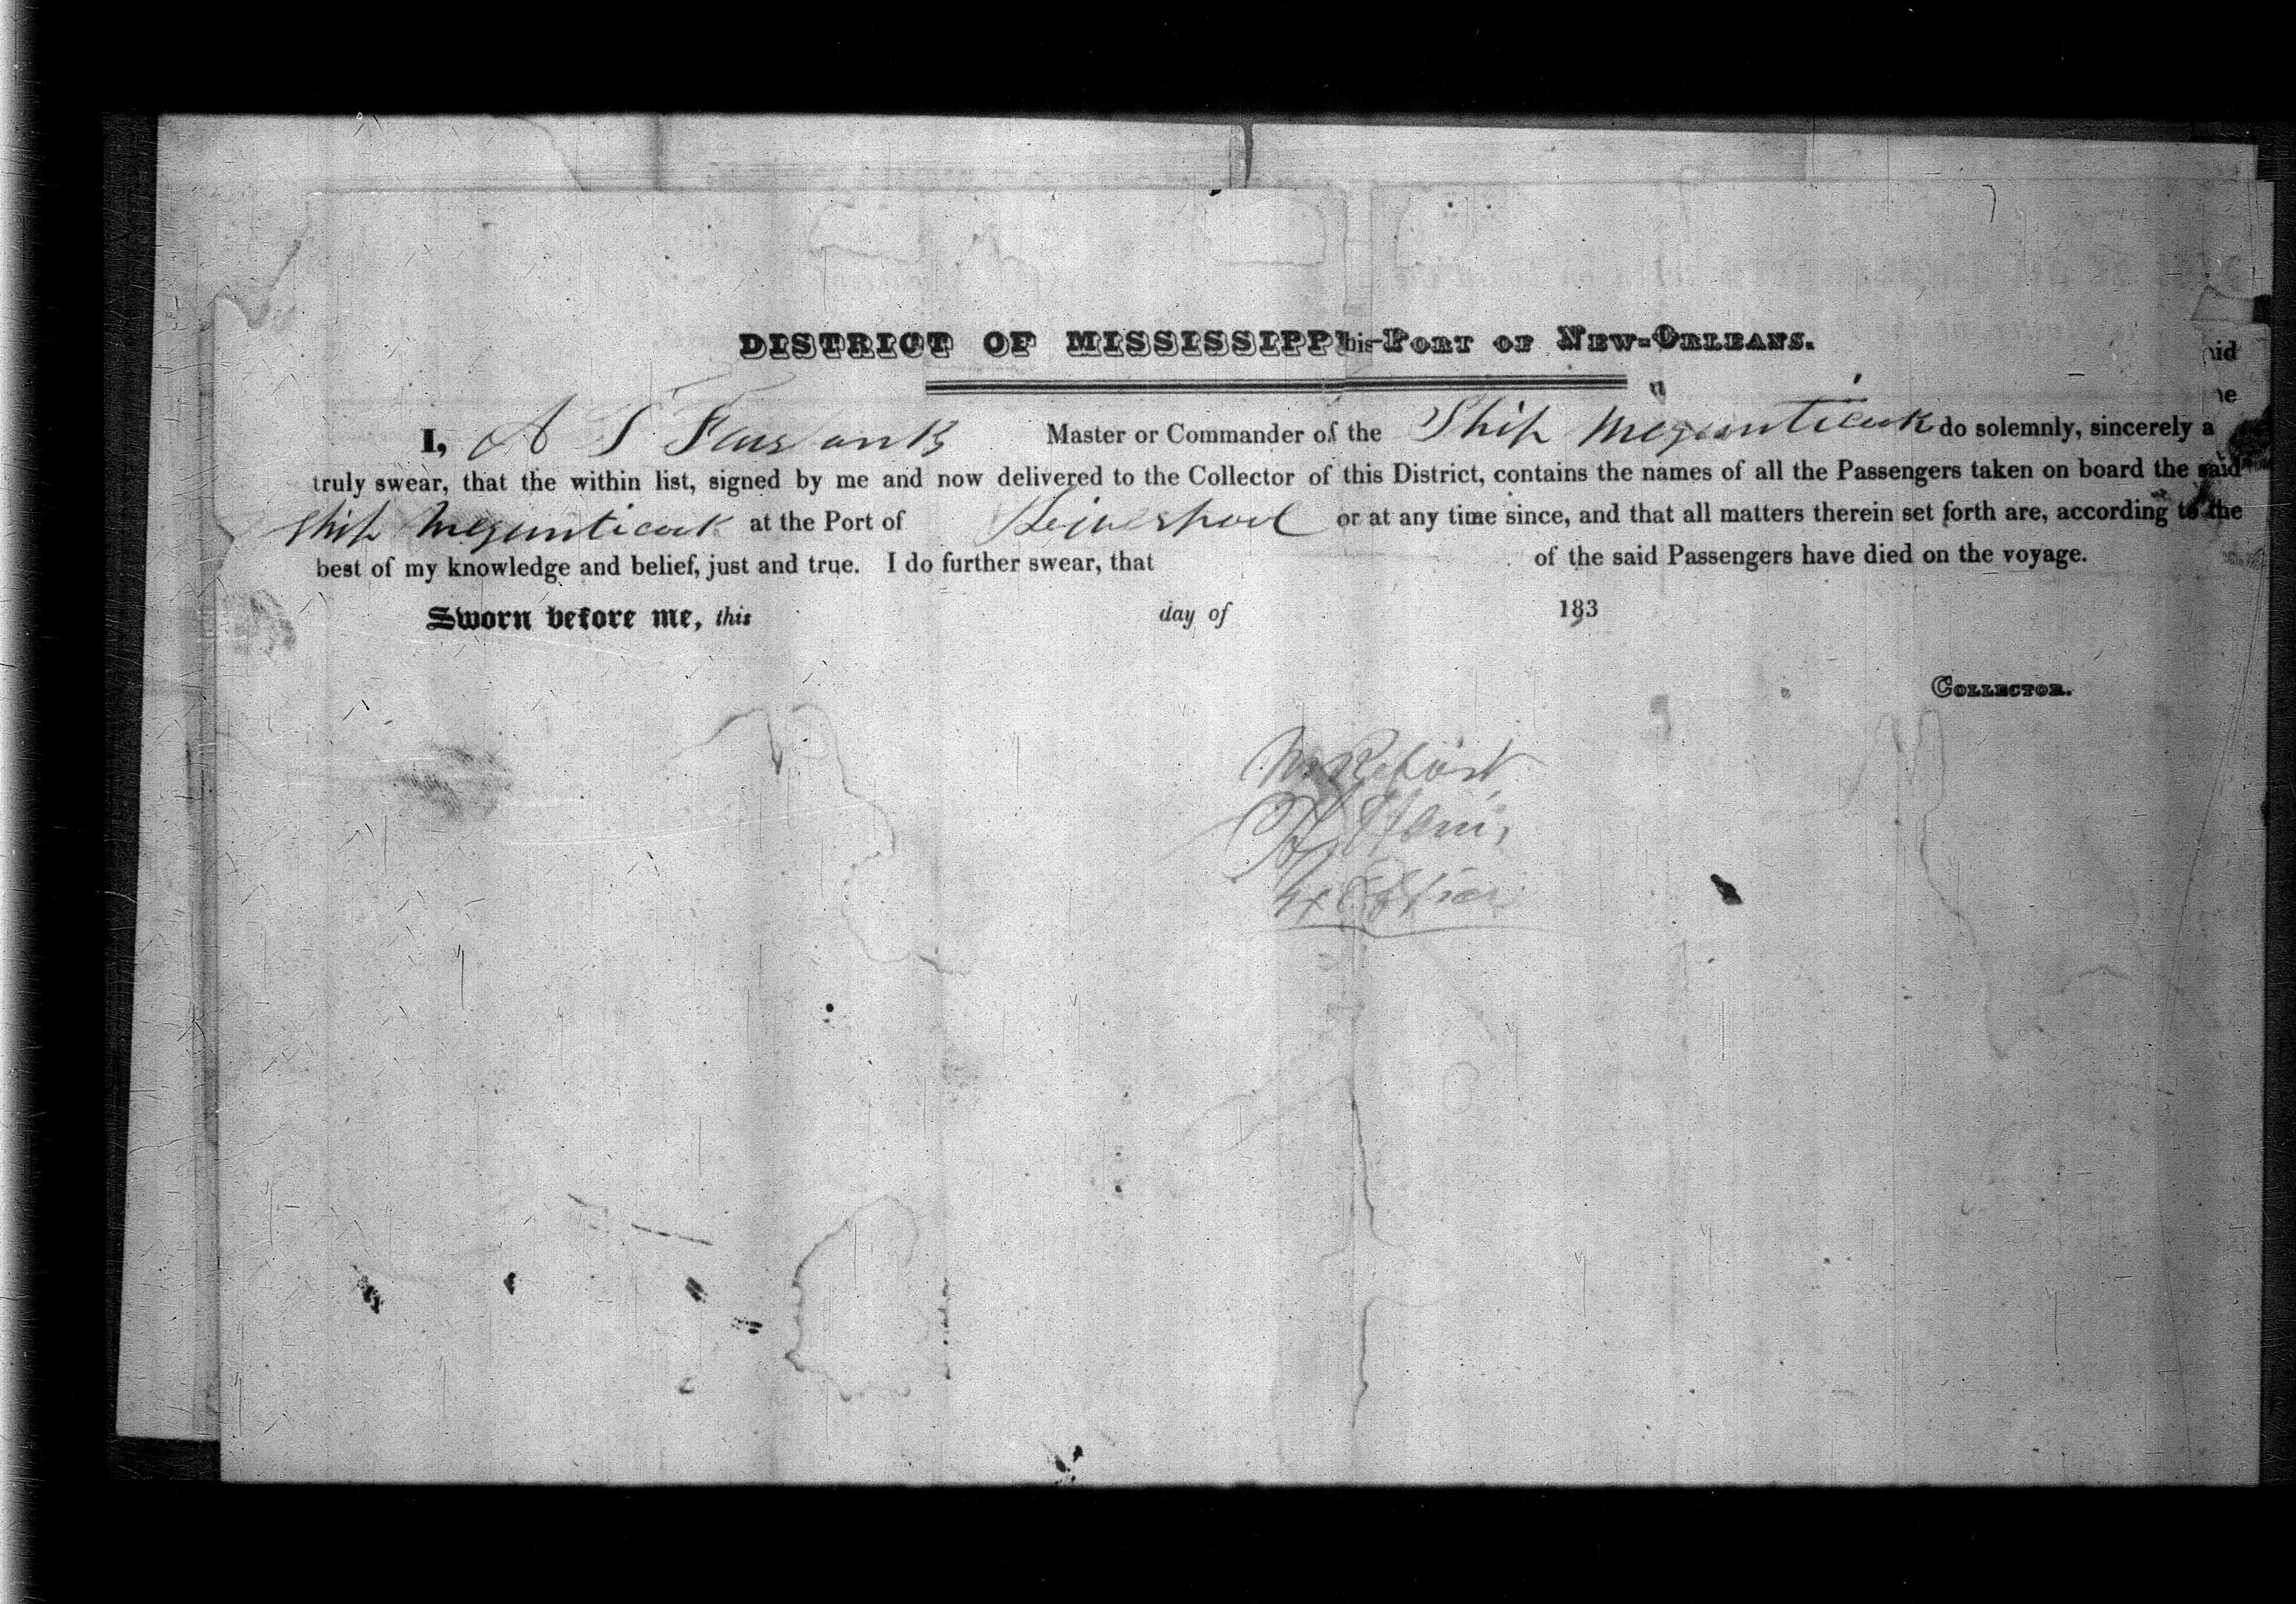 DISTRICT OF MISSISSIPPI his-PORT OF NEW-ORLEANS.
id
I, A S Master or Commander of the Ship Megunticook do solemnly, sincerely a
truly swear, that the within list, signed by me and now delivered to the Collector of this District, contains the names of all the Passengers taken on board the said
Ship Megunticook at the Port of Liverpool or at any time since, and that all matters therein set forth are, according to the
best of my knowledge and belief, just and true. I do further swear, that of the said Passengers have died on the voyage.
Sworn before me, this day of 183
COLLECTOR.